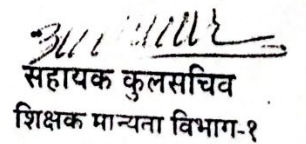 सहायक कुलसचिव
शिक्षक मान्यता विभाग-१